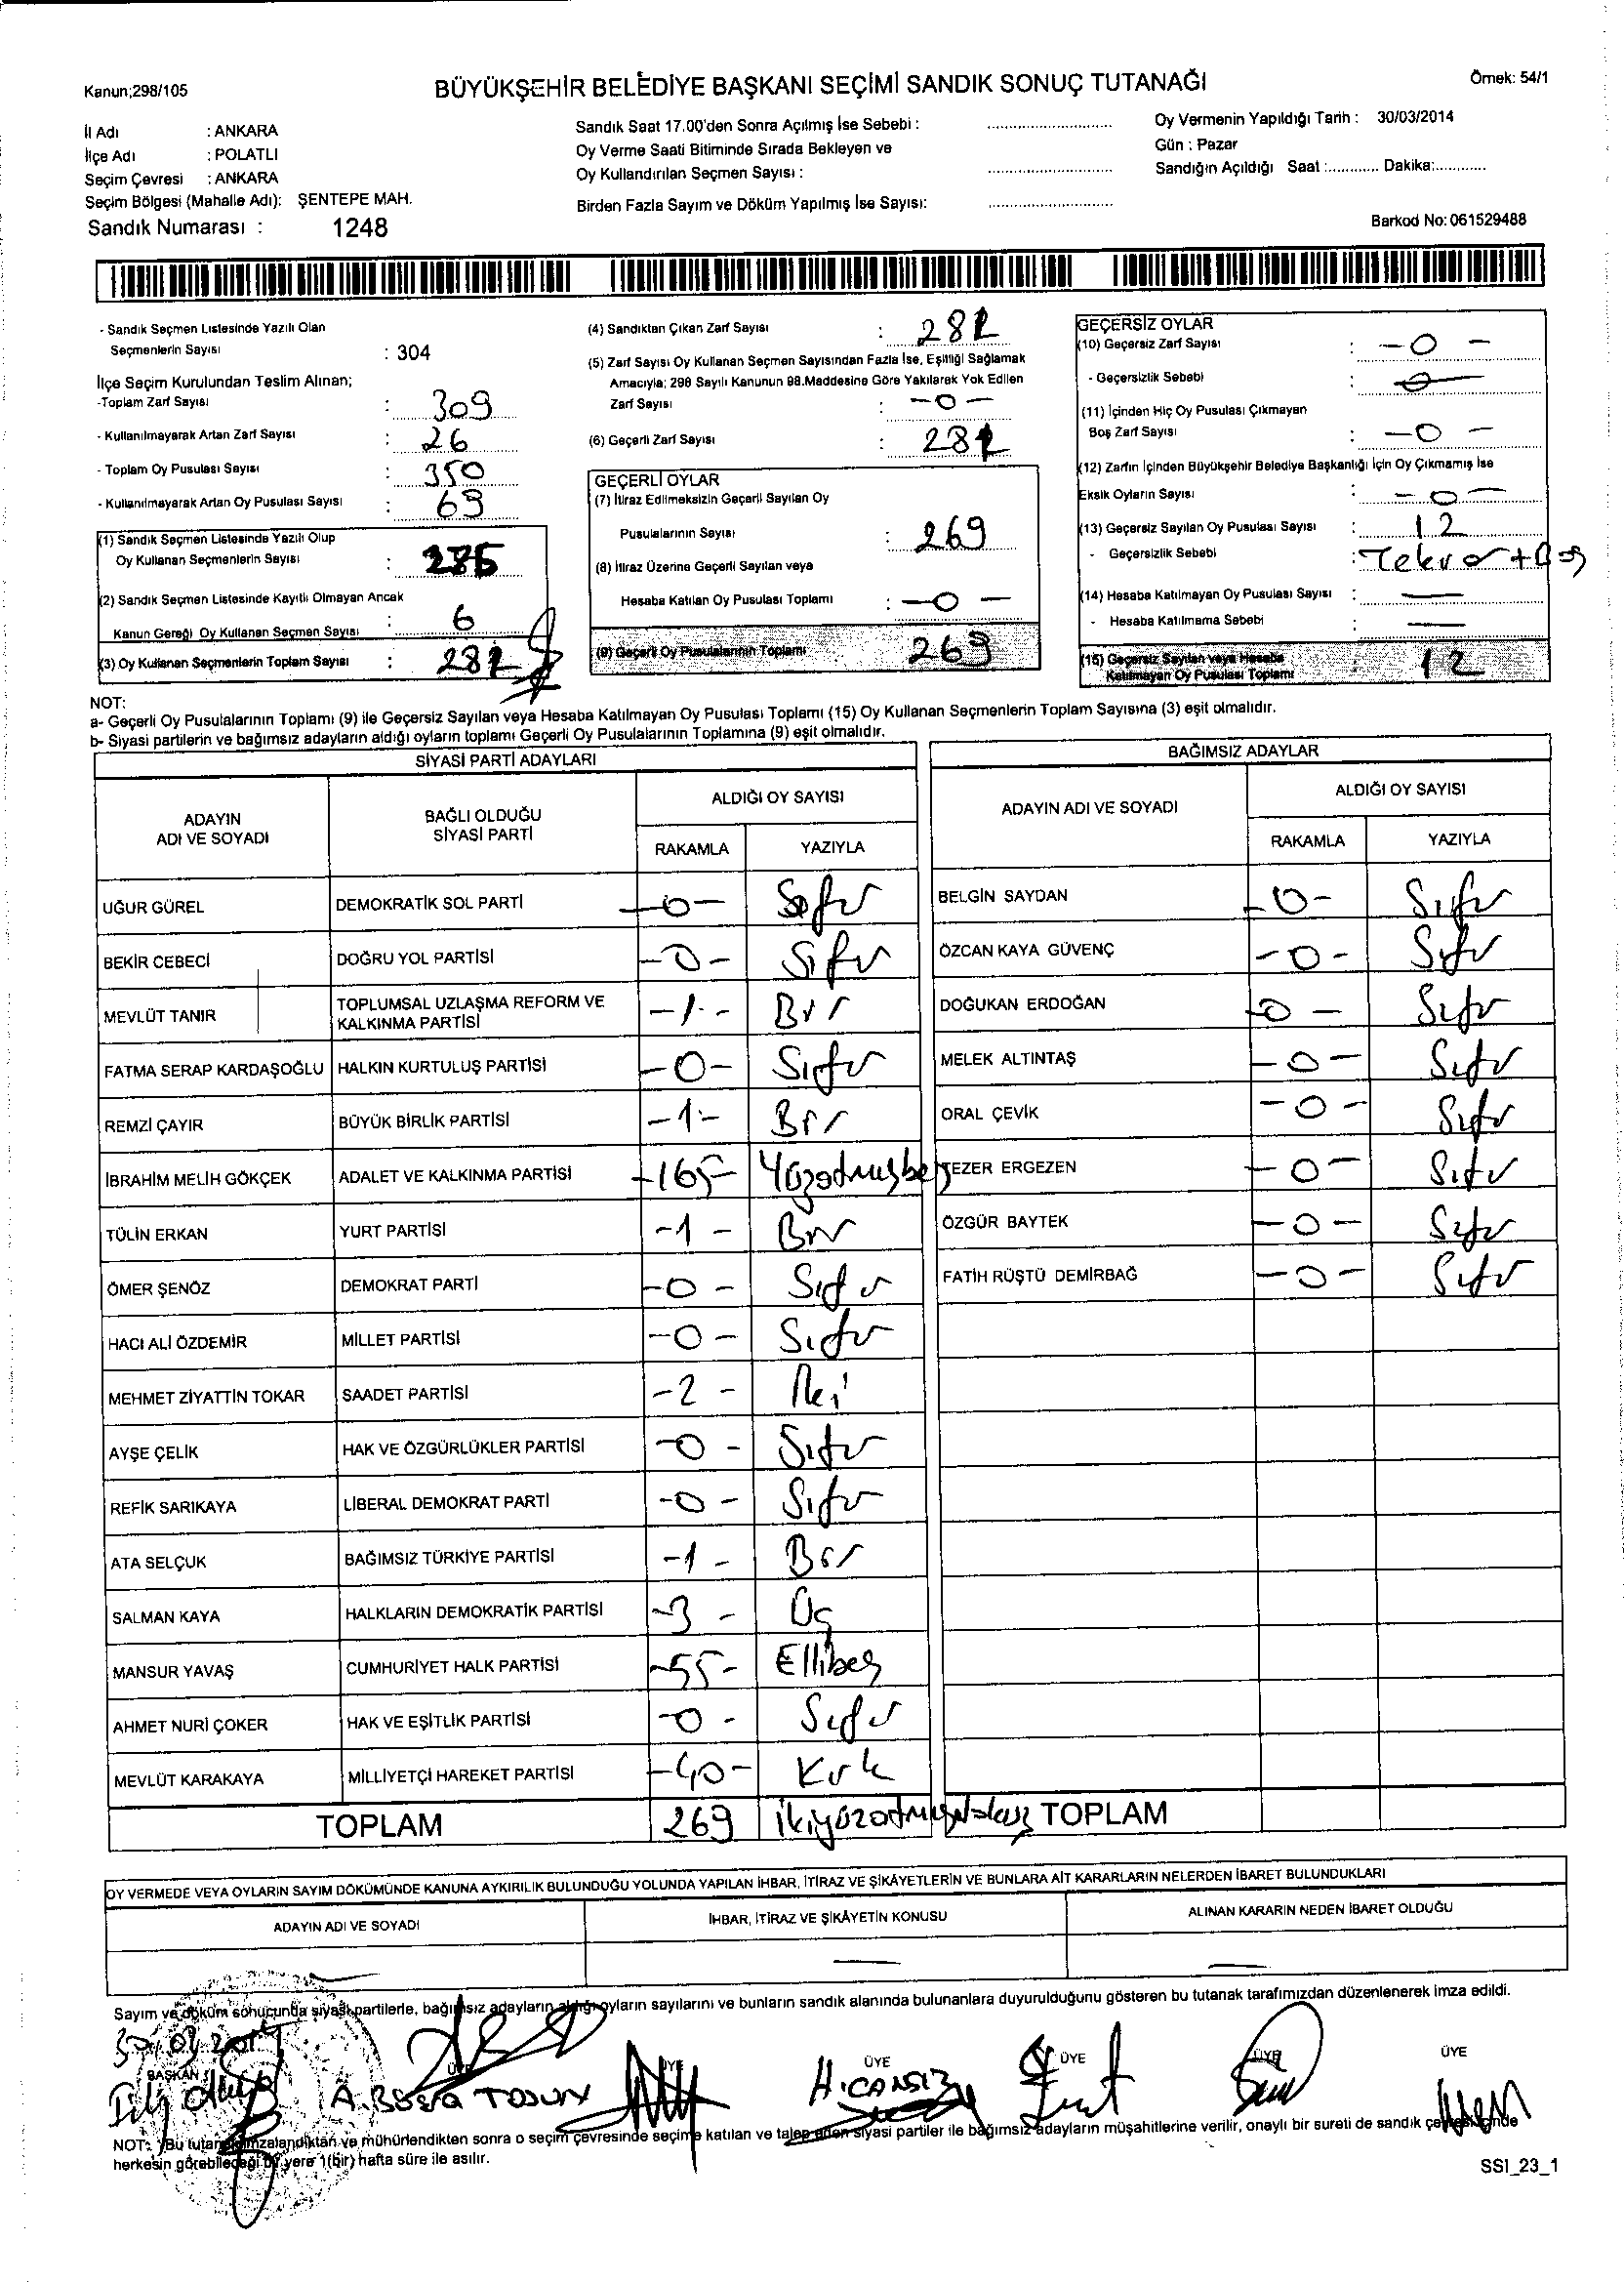 Kanun;298/105
BÜYÜKŞEHİR BELEDİYE BAŞKANI SEÇİMİ SANDIK SONUÇ TUTANAĞI
Örnek: 54/1
İl Adı : ANKARA
İlçe Adı : POLATLI
Seçim Çevresi : ANKARA
Seçim Bölgesi (Mahalle Adı): ŞENTEPE MAH.
Sandık Numarası : 1248
Sandık Saat 17.00'den Sonra Açılmış İse Sebebi :
Oy Verme Saati Bitiminde Sırada Bekleyen ve
Oy Kullandırılan Seçmen Sayısı :
Birden Fazla Sayım ve Döküm Yapılmış İse Sayısı:
Oy Vermenin Yapıldığı Tarih : 30/03/2014
Gün : Pazar
Sandığın Açıldığı Saat :............ Dakika:............
Barkod No: 061529488
- Sandık Seçmen Listesinde Yazılı Olan
Seçmenlerin Sayısı : 304
İlçe Seçim Kurulundan Teslim Alınan;
-Toplam Zarf Sayısı : 309
- Kullanılmayarak Artan Zarf Sayısı : 26
- Toplam Oy Pusulası Sayısı : 350
- Kullanılmayarak Artan Oy Pusulası Sayısı : 69
(1) Sandık Seçmen Listesinde Yazılı Olup
Oy Kullanan Seçmenlerin Sayısı :
(2) Sandık Seçmen Listesinde Kayıtlı Olmayan Ancak
Kanun Gereği Oy Kullanan Seçmen Sayısı : 6
(3) Oy Kullanan Seçmenlerin Toplam Sayısı :
(4) Sandıktan Çıkan Zarf Sayısı :
(5) Zarf Sayısı Oy Kullanan Seçmen Sayısından Fazla İse, Eşitliği Sağlamak
Amacıyla; 298 Sayılı Kanunun 98.Maddesine Göre Yakılarak Yok Edilen
Zarf Sayısı : -0-
(6) Geçerli Zarf Sayısı :
GEÇERLİ OYLAR
(7) İtiraz Edilmeksizin Geçerli Sayılan Oy
Pusulalarının Sayısı : 269
(8) İtiraz Üzerine Geçerli Sayılan veya
Hesaba Katılan Oy Pusulası Toplamı : -0-
(9) Geçerli Oy Pusulalarının Toplamı 269
GEÇERSİZ OYLAR
(10) Geçersiz Zarf Sayısı : -0-
- Geçersizlik Sebebi : 0
(11) İçinden Hiç Oy Pusulası Çıkmayan
Boş Zarf Sayısı : -0-
(12) Zarfın İçinden Büyükşehir Belediye Başkanlığı İçin Oy Çıkmamış İse
Eksik Oyların Sayısı : -0-
(13) Geçersiz Sayılan Oy Pusulası Sayısı : 12
- Geçersizlik Sebebi : Tekrar+Boş
(14) Hesaba Katılmayan Oy Pusulası Sayısı : —
- Hesaba Katılmama Sebebi : —
(15) Geçersiz Sayılan veya Hesaba
Katılmayan Oy Pusulası Toplamı : 12
NOT:
a- Geçerli Oy Pusulalarının Toplamı (9) ile Geçersiz Sayılan veya Hesaba Katılmayan Oy Pusulası Toplamı (15) Oy Kullanan Seçmenlerin Toplam Sayısına (3) eşit olmalıdır.
b- Siyasi partilerin ve bağımsız adayların aldığı oyların toplamı Geçerli Oy Pusulalarının Toplamına (9) eşit olmalıdır.
SİYASİ PARTİ ADAYLARI
ADAYIN ADI VE SOYADI BAĞLI OLDUĞU SİYASİ PARTİ ALDIĞI OY SAYISI
RAKAMLA YAZIYLA
UĞUR GÜREL DEMOKRATİK SOL PARTİ -0- Sıfır
BEKİR CEBECİ DOĞRU YOL PARTİSİ -0- Sıfır
MEVLÜT TANIR TOPLUMSAL UZLAŞMA REFORM VE KALKINMA PARTİSİ -1- Bir
FATMA SERAP KARDAŞOĞLU HALKIN KURTULUŞ PARTİSİ -0- Sıfır
REMZİ ÇAYIR BÜYÜK BİRLİK PARTİSİ -1- Bir
İBRAHİM MELİH GÖKÇEK ADALET VE KALKINMA PARTİSİ -165- Yüzatmışbeş
TÜLİN ERKAN YURT PARTİSİ -1- Bir
ÖMER ŞENÖZ DEMOKRAT PARTİ -0- Sıfır
HACI ALİ ÖZDEMİR MİLLET PARTİSİ -0- Sıfır
MEHMET ZİYATTİN TOKAR SAADET PARTİSİ -2- İki
AYŞE ÇELİK HAK VE ÖZGÜRLÜKLER PARTİSİ -0- Sıfır
REFİK SARIKAYA LİBERAL DEMOKRAT PARTİ -0- Sıfır
ATA SELÇUK BAĞIMSIZ TÜRKİYE PARTİSİ -1- Bir
SALMAN KAYA HALKLARIN DEMOKRATİK PARTİSİ -3- Üç
MANSUR YAVAŞ CUMHURİYET HALK PARTİSİ -55- Ellibeş
AHMET NURİ ÇOKER HAK VE EŞİTLİK PARTİSİ -0- Sıfır
MEVLÜT KARAKAYA MİLLİYETÇİ HAREKET PARTİSİ -40- Kırk
TOPLAM 269 İkiyüzatmışdokuz
BAĞIMSIZ ADAYLAR
ADAYIN ADI VE SOYADI ALDIĞI OY SAYISI
RAKAMLA YAZIYLA
BELGİN SAYDAN -0- Sıfır
ÖZCAN KAYA GÜVENÇ -0- Sıfır
DOĞUKAN ERDOĞAN -0- Sıfır
MELEK ALTINTAŞ -0- Sıfır
ORAL ÇEVİK -0- Sıfır
TEZER ERGEZEN -0- Sıfır
ÖZGÜR BAYTEK -0- Sıfır
FATİH RÜŞTÜ DEMİRBAĞ -0- Sıfır
TOPLAM
OY VERMEDE VEYA OYLARIN SAYIM DÖKÜMÜNDE KANUNA AYKIRILIK BULUNDUĞU YOLUNDA YAPILAN İHBAR, İTİRAZ VE ŞİKÂYETLERİN VE BUNLARA AİT KARARLARIN NELERDEN İBARET BULUNDUKLARI
ADAYIN ADI VE SOYADI İHBAR, İTİRAZ VE ŞİKÂYETİN KONUSU ALINAN KARARIN NEDEN İBARET OLDUĞU
Sayım ve döküm sonucunda siyasi partilerle, bağımsız adayların aldığı oyların sayılarını ve bunların sandık alanında bulunanlara duyurulduğunu gösteren bu tutanak tarafımızdan düzenlenerek imza edildi.
30/03/2014
BAŞKAN ÜYE ÜYE ÜYE ÜYE ÜYE ÜYE
H.CANSIZ
NOT: Bu tutanak imzalandıktan ve mühürlendikten sonra o seçim çevresinde seçime katılan ve talep eden siyasi partiler ile bağımsız adayların müşahitlerine verilir, onaylı bir sureti de sandık çevresi içinde
herkesin görebileceği bir yere 1(bir) hafta süre ile asılır.
SSI_23_1